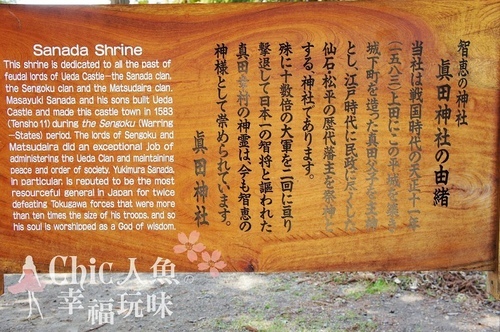 Sanada Shrine
This shrine is dedicated to all the past of
feudal lords of Ueda Castle—the Sanada clan,
the Sengoku clan and the Matsudaira clan.
Masayuki Sanada and his sons built Ueda
Castle and made this castle town in 1583
(Tensho 11) during the Sengoku (Warring
-States) period. The lords of Sengoku and
Matsudaira did an exceptional job of
administering the Ueda Clan and maintaining
peace and order of society. Yukimura Sanada,
in particular, is reputed to be the most
resourceful general in Japan for twice
defeating Tokugawa forces that were more
than ten times the size of his troops, and so
his soul is worshipped as a God of wisdom.
智恵の神社
眞田神社の由緒
当社は戦国時代の天正十一年
(一五八三)上田にこの平城を築き
城下町を造った真田父子を主神
とし、江戸時代に民政に尽力した
仙石・松平の歴代藩主を
する、神社であります。
殊に十数倍の大軍を二回に亘り
撃退して日本一の智将と謳われた
真田幸村の神霊は、今も智恵の
神様として崇められています。
眞田神社
Chic人魚
幸福玩味